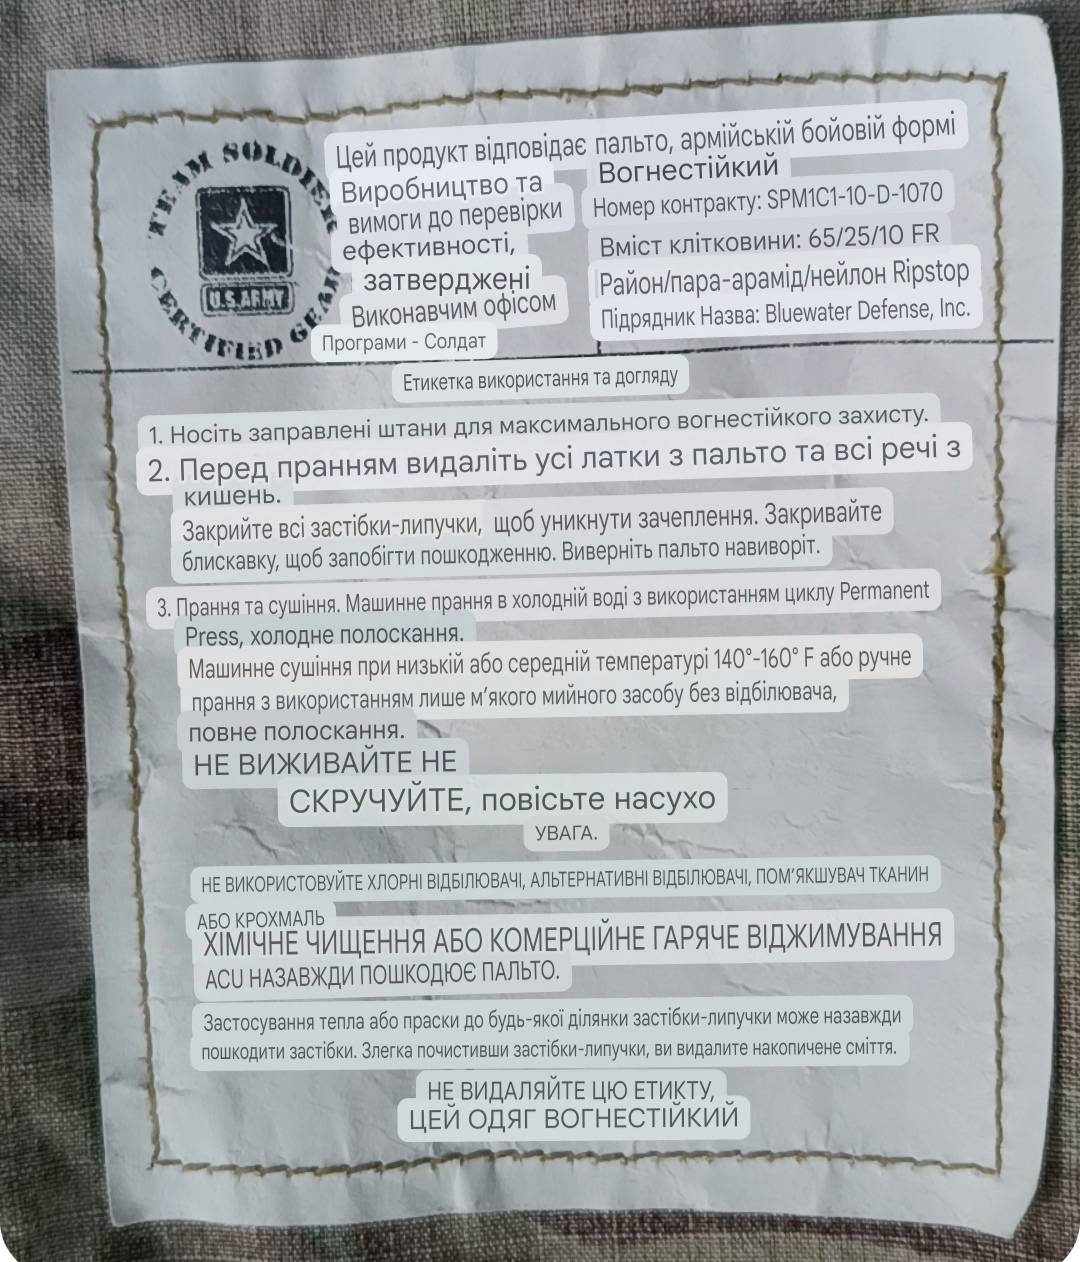 TEAM SOLDIER
CERTIFIED GEAR
U.S.ARMY
Цей продукт відповідає
Виробництво та
вимоги до перевірки
ефективності,
затверджені
Виконавчим офісом
Програми - Солдат
пальто, армійській бойовій формі
Вогнестійкий
Номер контракту: SPM1C1-10-D-1070
Вміст клітковини: 65/25/10 FR
Район/пара-арамід/нейлон Ripstop
Підрядник Назва: Bluewater Defense, Inc.
Етикетка використання та догляду
1. Носіть заправлені штани для максимального вогнестійкого захисту.
2. Перед пранням видаліть усі латки з пальто та всі речі з
кишень.
Закрийте всі застібки-липучки, щоб уникнути зачеплення. Закривайте
блискавку, щоб запобігти пошкодженню. Виверніть пальто навиворіт.
3. Прання та сушіння. Машинне прання в холодній воді з використанням циклу Permanent
Press, холодне полоскання.
Машинне сушіння при низькій або середній температурі 140°-160° F або ручне
прання з використанням лише м’якого мийного засобу без відбілювача,
повне полоскання.
НЕ ВИЖИВАЙТЕ НЕ
СКРУЧУЙТЕ, повісьте насухо
УВАГА.
НЕ ВИКОРИСТОВУЙТЕ ХЛОРНІ ВІДБІЛЮВАЧІ, АЛЬТЕРНАТИВНІ ВІДБІЛЮВАЧІ, ПОМ’ЯКШУВАЧ ТКАНИН
АБО КРОХМАЛЬ
ХІМІЧНЕ ЧИЩЕННЯ АБО КОМЕРЦІЙНЕ ГАРЯЧЕ ВІДЖИМУВАННЯ
ACU НАЗАВЖДИ ПОШКОДЮЄ ПАЛЬТО.
Застосування тепла або праски до будь-якої ділянки застібки-липучки може назавжди
пошкодити застібки. Злегка почистивши застібки-липучки, ви видалите накопичене сміття.
НЕ ВИДАЛЯЙТЕ ЦЮ ЕТИКТУ,
ЦЕЙ ОДЯГ ВОГНЕСТІЙКИЙ